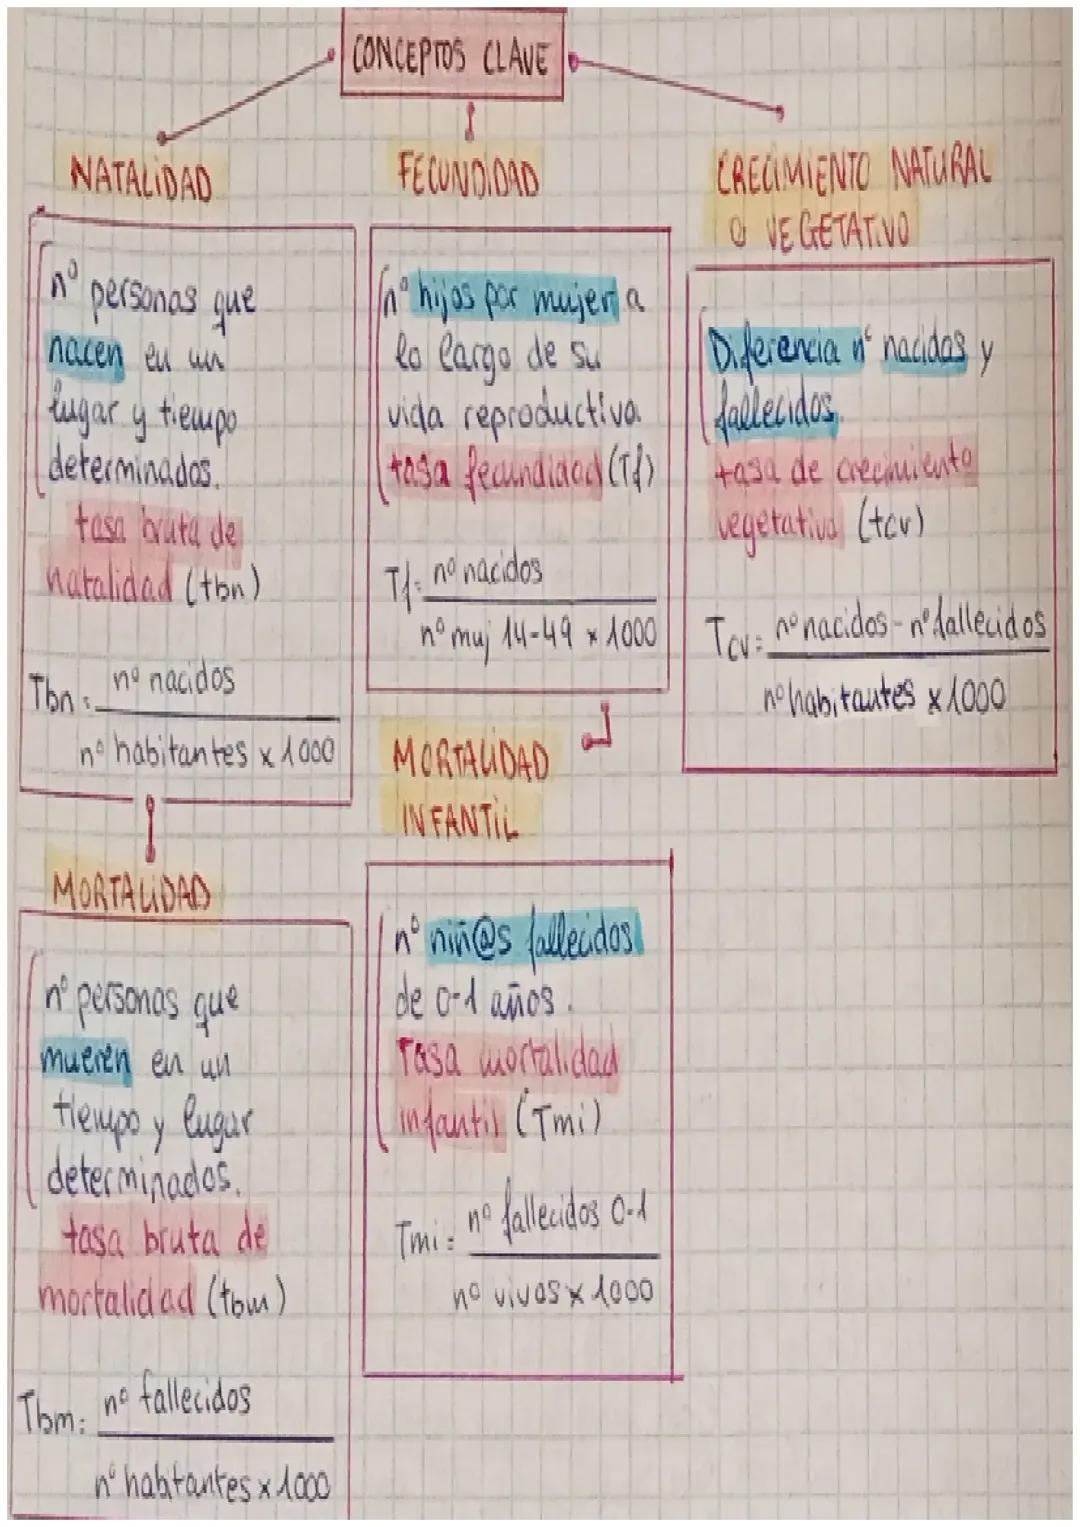 CONCEPTOS CLAVE
NATALIDAD
nº personas que
nacen en un
lugar y tiempo
determinados.
tasa bruta de
natalidad (tbn)
Tbn = nº nacidos
nº habitantes x 1000
MORTALIDAD
nº personas que
mueren en un
tiempo y lugar
determinados.
tasa bruta de
mortalidad (tbm)
Tbm = nº fallecidos
nº habtantes x 1000
FECUNDIDAD
nº hijos por mujer a
lo largo de su
vida reproductiva
tasa fecundidad (Tf)
Tf = nº nacidos
nº muj 14-49 x 1000
MORTALIDAD
INFANTIL
nº niñ@s fallecidos
de 0-1 años.
Tasa mortalidad
infantil (Tmi)
Tmi = nº fallecidos 0-1
nº vivos x 1000
CRECIMIENTO NATURAL
O VEGETATIVO
Diferencia nº nacidos y
fallecidos.
tasa de crecimiento
vegetativo (tcv)
Tcv = nº nacidos - nº fallecidos
nº habitantes x 1000